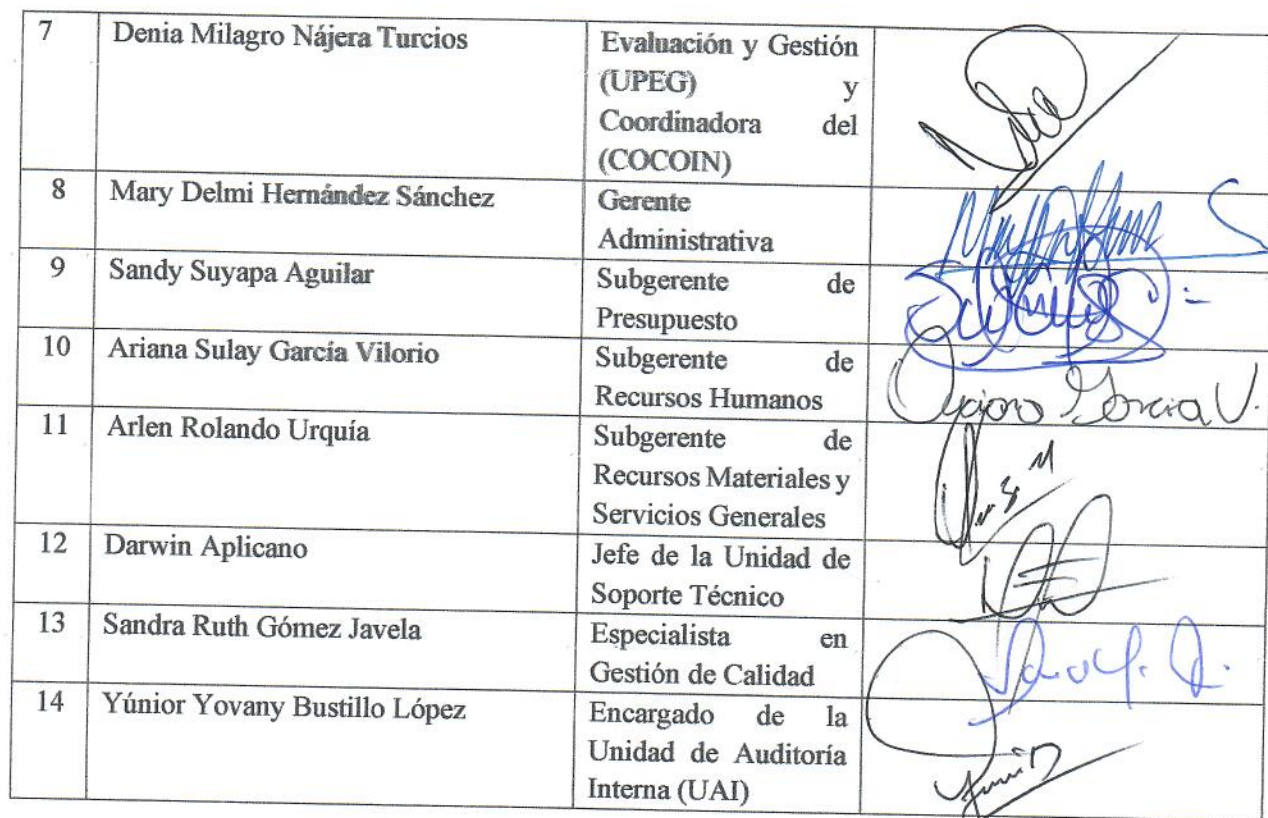 7 Denia Milagro Nájera Turcios Evaluación y Gestión
(UPEG) y
Coordinadora del
(COCOIN)
8 Mary Delmi Hernández Sánchez Gerente
Administrativa
9 Sandy Suyapa Aguilar Subgerente de
Presupuesto
10 Ariana Sulay García Vilorio Subgerente de
Recursos Humanos
García V.
11 Arlen Rolando Urquía Subgerente de
Recursos Materiales y
Servicios Generales
12 Darwin Aplicano Jefe de la Unidad de
Soporte Técnico
13 Sandra Ruth Gómez Javela Especialista en
Gestión de Calidad
14 Yúnior Yovany Bustillo López Encargado de la
Unidad de Auditoría
Interna (UAI)